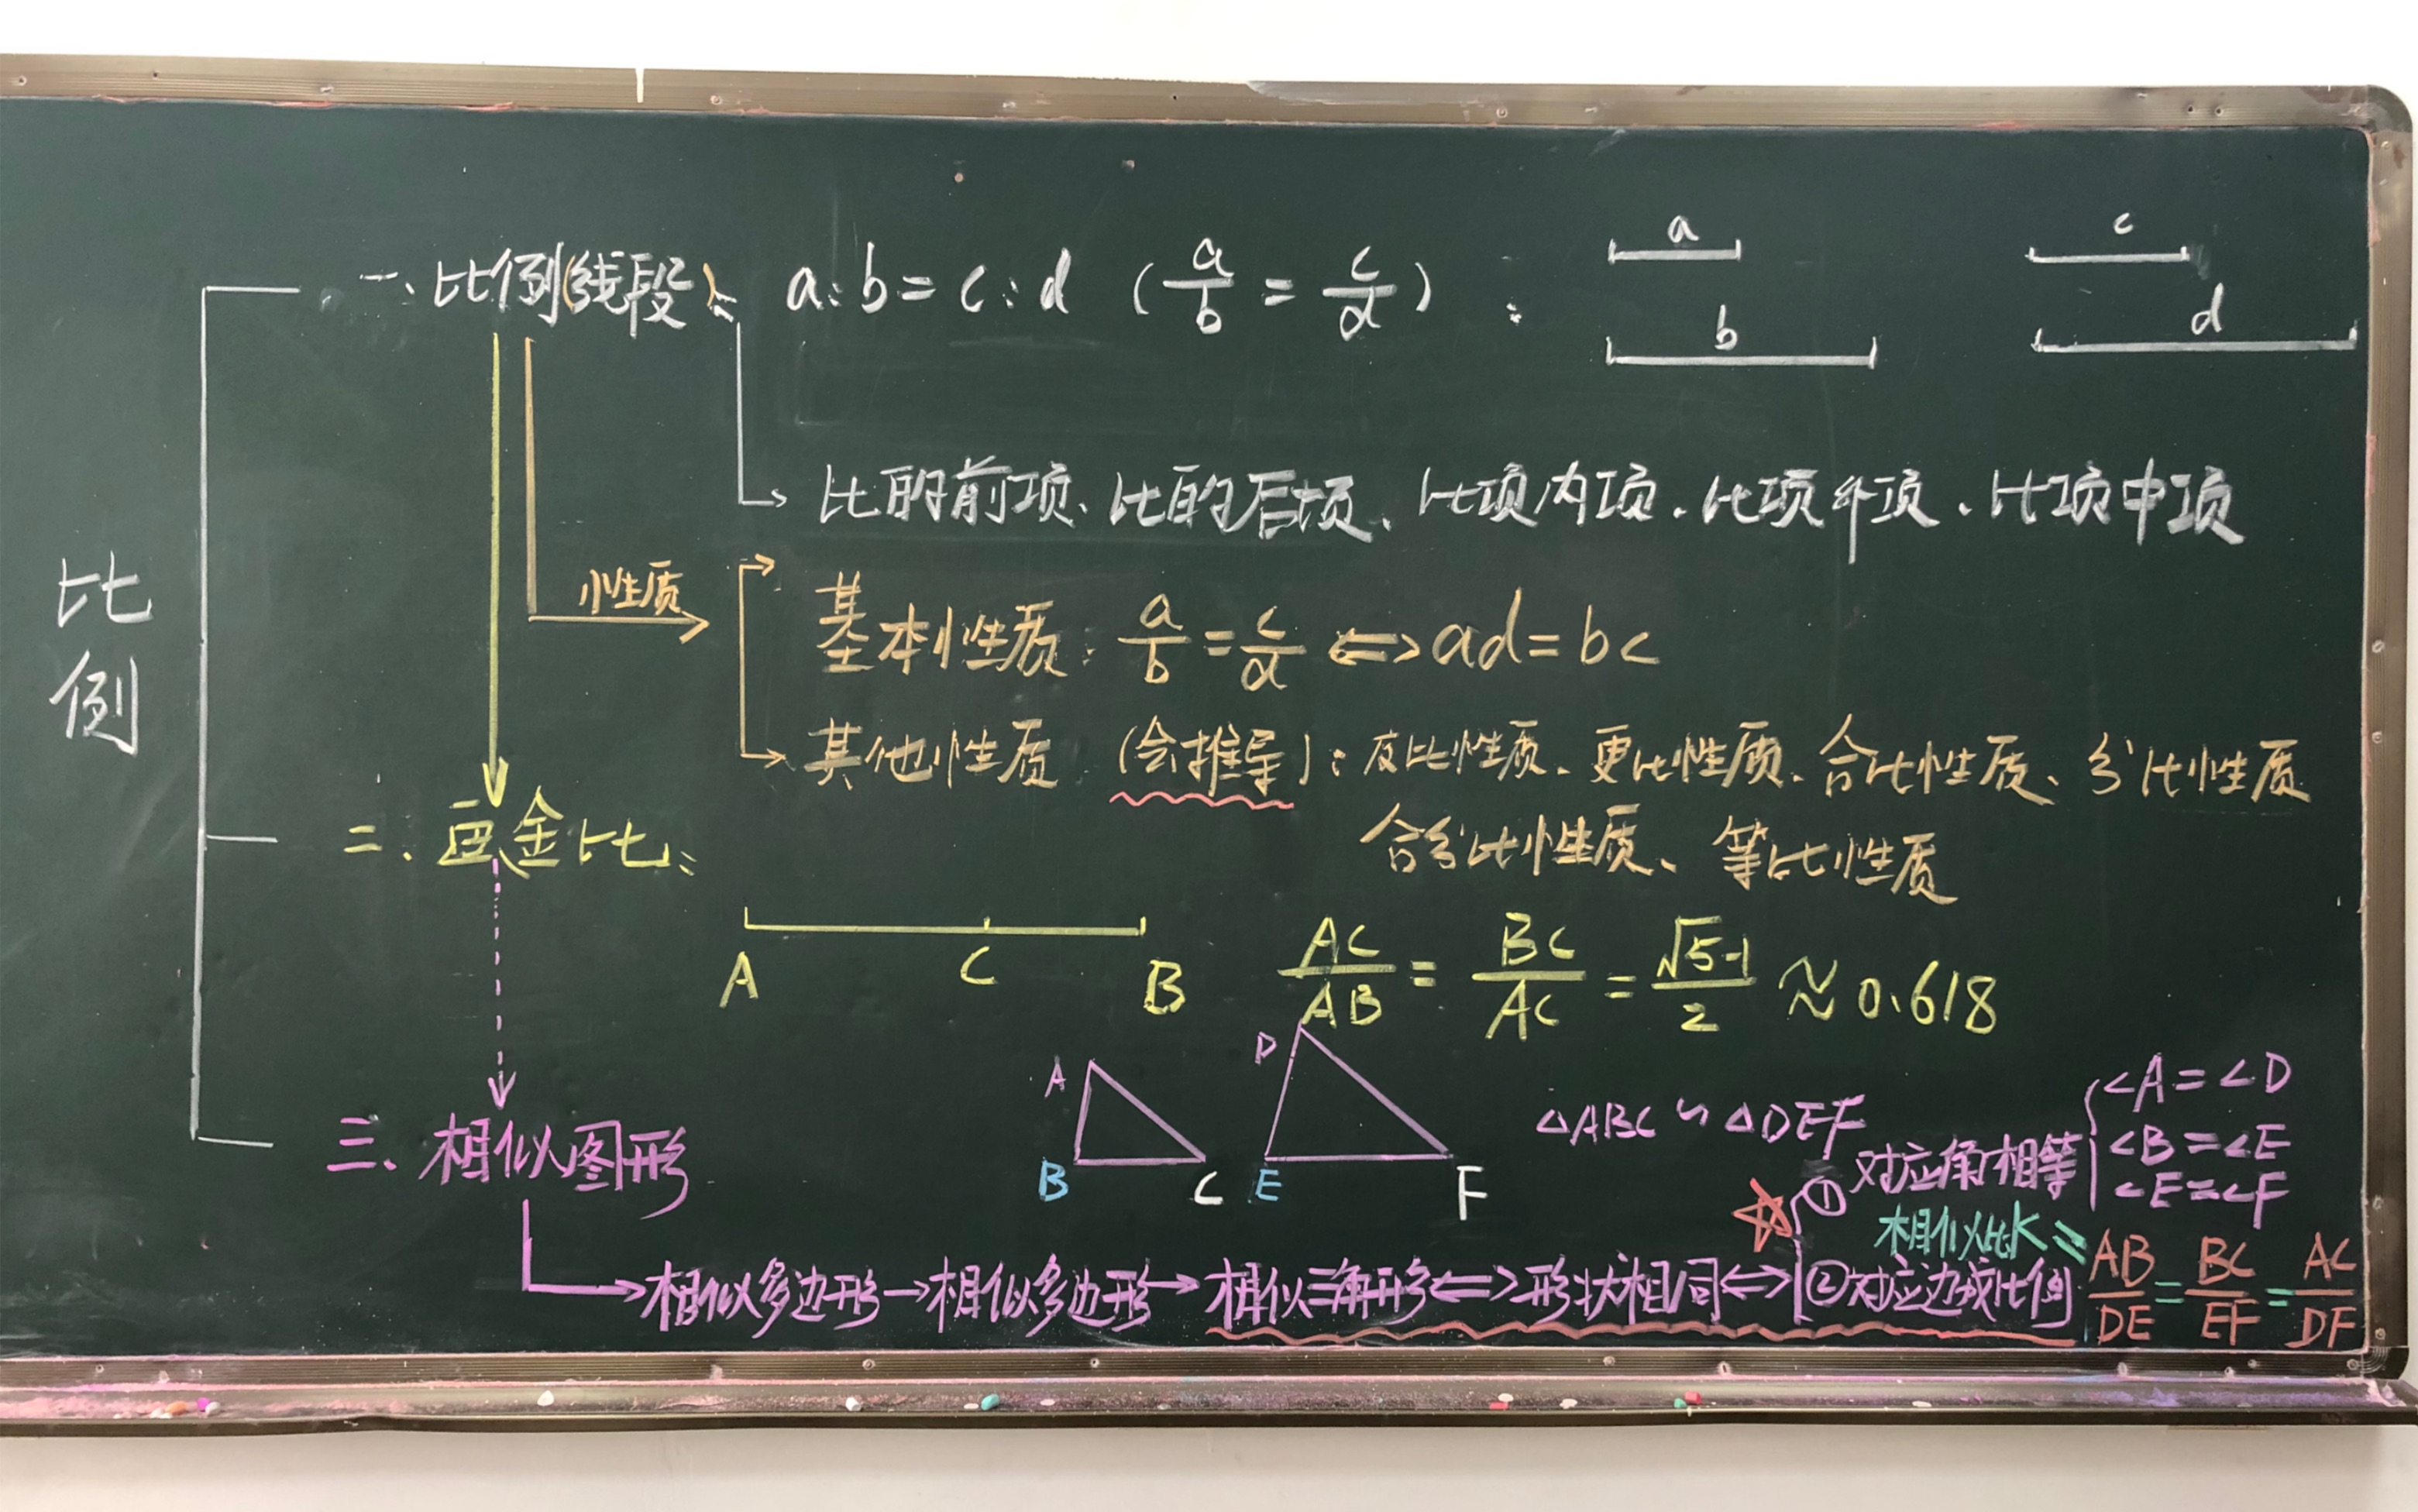 比例
一、比例(线段): a:b=c:d (a/b = c/d) :
a
c
b
d
比的前项、比的后项、比项内项、比项外项、比项中项
性质
基本性质: a/b = c/d ⟺ ad=bc
其他性质 (会推导): 反比性质、更比性质、合比性质、分比性质
合分比性质、等比性质
二、黄金比:
A C B
AC/AB = BC/AC = √5-1/2 ≈ 0.618
三、相似图形
A B C
D E F
△ABC∽△DEF
①对应角相等
∠A=∠D
∠B=∠E
∠E=∠F
相似比K =
相似多边形→相似多边形→相似三角形⟺形状相同⟺②对应边成比例
AB/DE = BC/EF = AC/DF